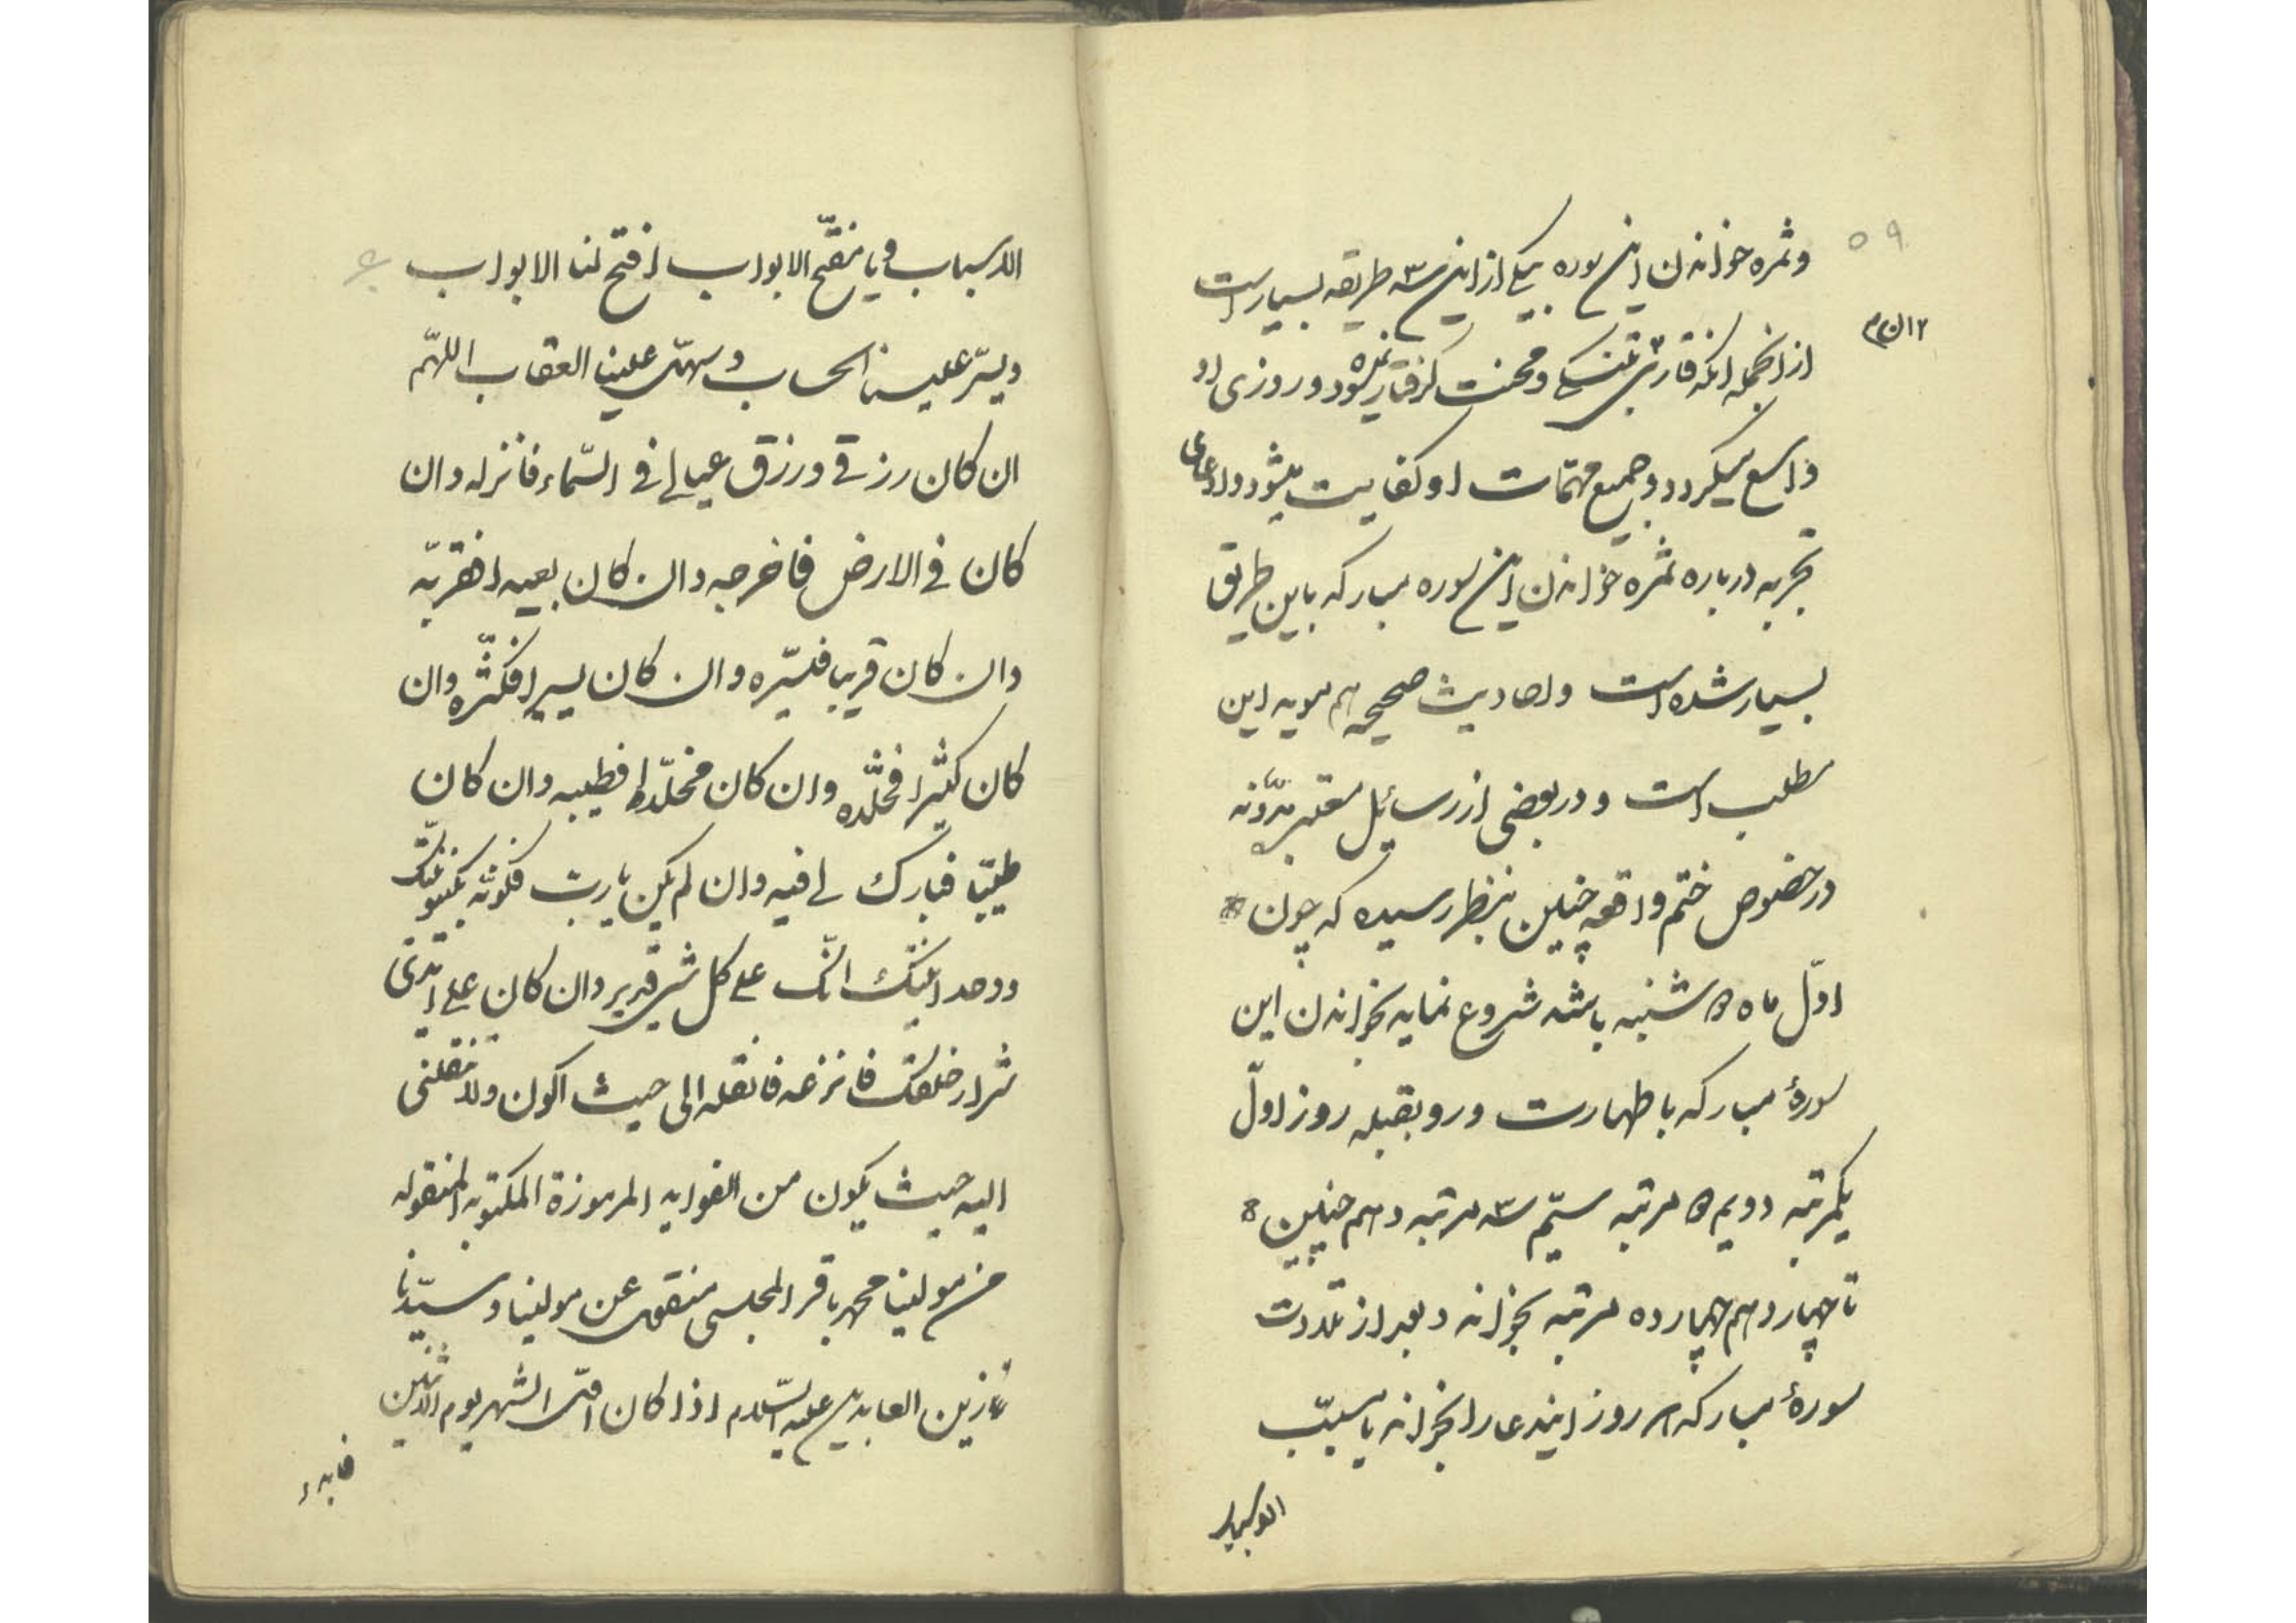 ۵۹
وثمره خواندن این سوره بیکی از این سه طریقه بسیار است
از انجمله انکه قاری بتنگی و محنت گرفتار نمیشود و روزی او
واسع میکردد و جمیع مهمّات او کفایت میشود و ادعای
تجربه درباره ثمره خواندن این سوره مبارکه باین طریق
بسیار شده است واحادیث صحیحه هم موید این
مطلب است و در بعضی از رسایل معتبر
در خصوص ختم واقعه چنین بنظر رسیده که چون
اوّل ماه دوشنبه باشد شروع نماید بخواندن این
سورهٔ مبارکه با طهارت و رو بقبله روز اوّل
یکمرتبه دویم دو مرتبه سیّم سه مرتبه و هم چنین
تا چهاردهم چهارده مرتبه بخواند و بعد از تلاوت
سورهٔ مبارکه هر روز ایندعا را بخواند یا مسبّب
الاسباب
الاسباب ویا مفتّح الابواب افتح لنا الابواب
ویسّر علینا الحساب وسهّل علینا العقاب اللهمّ
ان کان رزقی ورزق عیالی فی السّماء فانزله وان
کان فی الارض فاخرجه وان کان بعید افقرّبه
وان کان قریبا فیسّره وان کان یسیرا فکثّره وان
کان کثیرا فخلّده وان کان مخلّدا فطیبه وان کان
طیّبا فبارک لی فیه وان لم یکن یا ربّ فکوّنه بکینونیّتک
ووحدانیّتک انّک علی کل شی قدیر وان کان علی ایدی
شرار خلقک فانزعه فانقله الی حیث اکون ولا تنقلنی
الیه حیث یکون من الفواید المرموزة المکتوبه المنقوله
من مولینا محمد باقر المجلسی منقول عن مولینا وسیّدنا
زین العابدین علیه السّلام اذا کان اوّل الشهر یوم الاثنین
فابدء